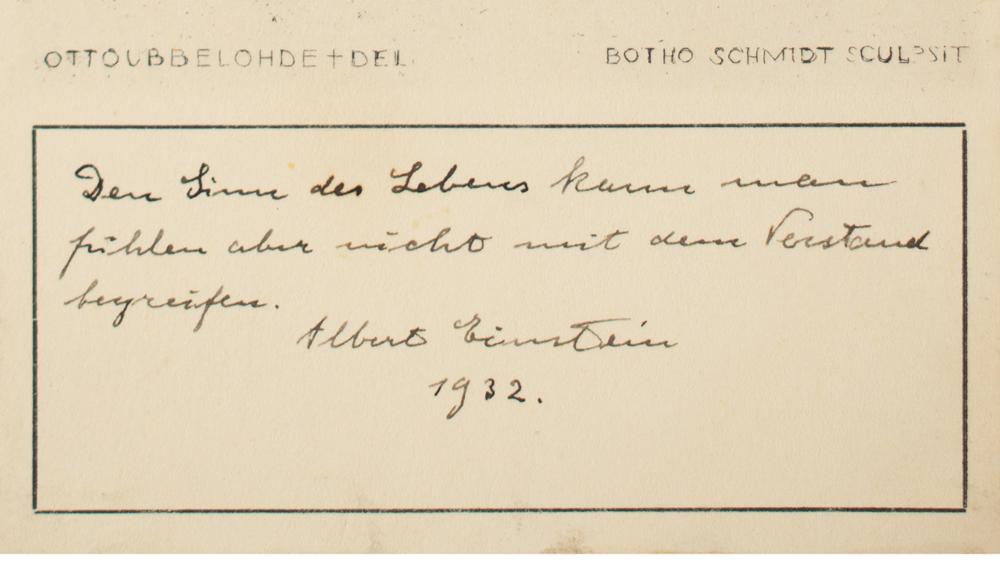 OTTO UBBELOHDE + DEL. BOTHO SCHMIDT SCULPSIT
Den Sinn des Lebens kann man
fühlen aber nicht mit dem Verstand
begreifen.
Albert Einstein
1932.